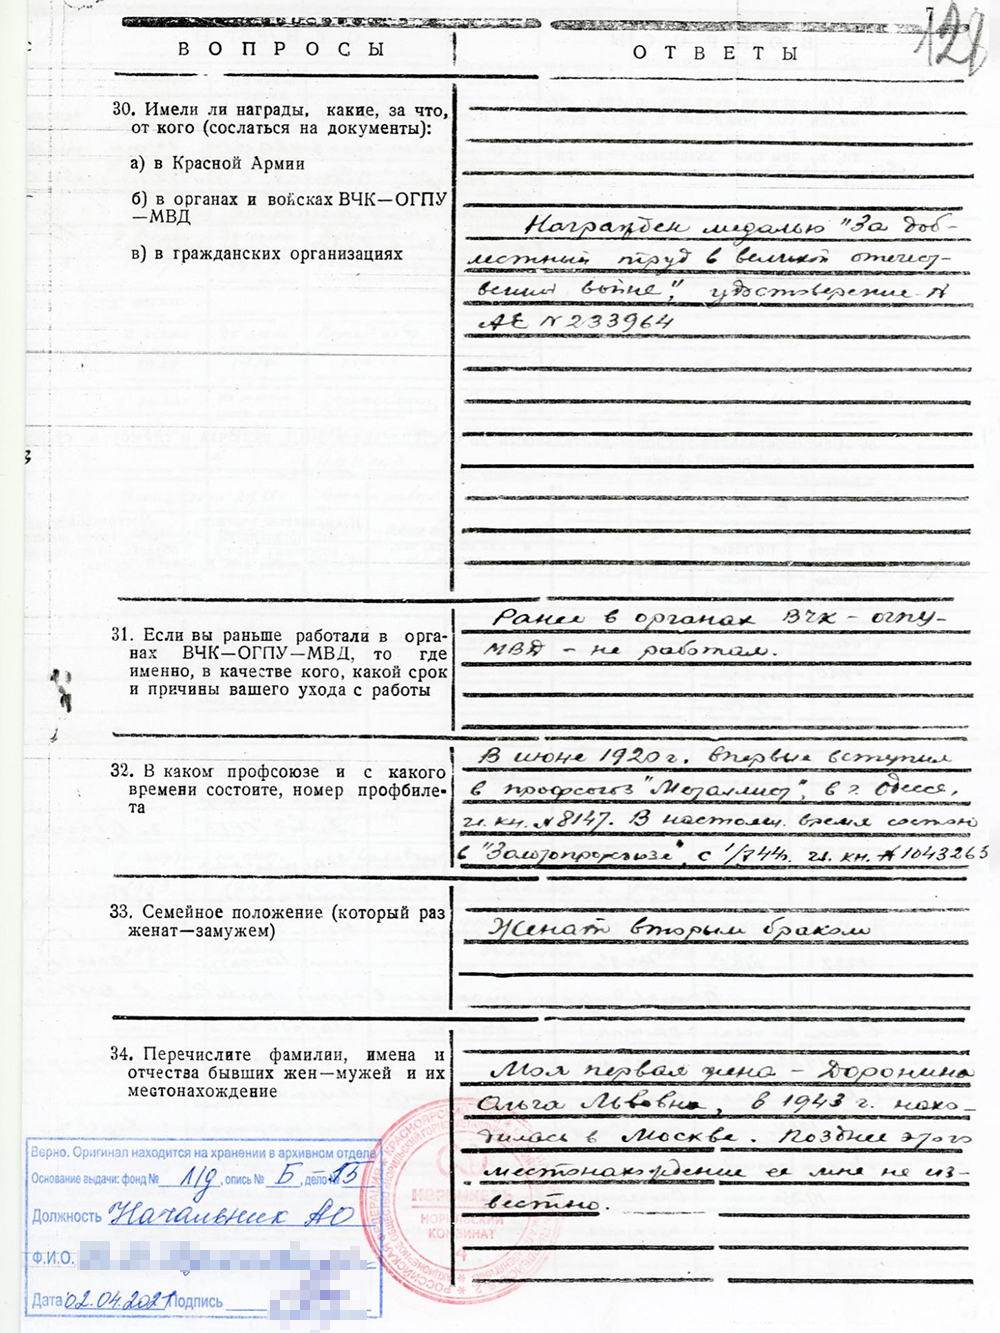 7
128
ВОПРОСЫ
ОТВЕТЫ
30. Имели ли награды, какие, за что,
от кого (сослаться на документы):
а) в Красной Армии
б) в органах и войсках ВЧК—ОГПУ
—МВД
в) в гражданских организациях
Награжден медалью "За доб-
лестный труд в великой отечест-
венной войне", удостоверение
АЕ N 233964
31. Если вы раньше работали в орга-
нах ВЧК—ОГПУ—МВД, то где
именно, в качестве кого, какой срок
и причины вашего ухода с работы
Ранее в органах ВЧК - ОГПУ-
МВД - не работал.
32. В каком профсоюзе и с какого
времени состоите, номер профбиле-
та
В июне 1920 г. впервые вступил
в профсоюз "Металлист", в г. Одессе,
чл. кн. N 8147. В настоящ. время состою
в "Золотопрофсоюзе", с 1/ 44г. чл. кн. N 1043263
33. Семейное положение (который раз
женат—замужем)
Женат вторым браком
34. Перечислите фамилии, имена и
отчества бывших жен—мужей и их
местонахождение
Моя первая жена - Доронина
Ольга Львовна, в 1943 г. нахо-
дилась в Москве. Позднее этого
местонахождение ее мне не из-
вестно.
Верно. Оригинал находится на хранении в архивном отделе
Основание выдачи: фонд № л/д, опись № Б, дело 15
Должность Начальник АО
Ф.И.О.
Дата 02.04.2021 Подпись
НОРИЛЬСКИЙ
КОМБИНАТ
4